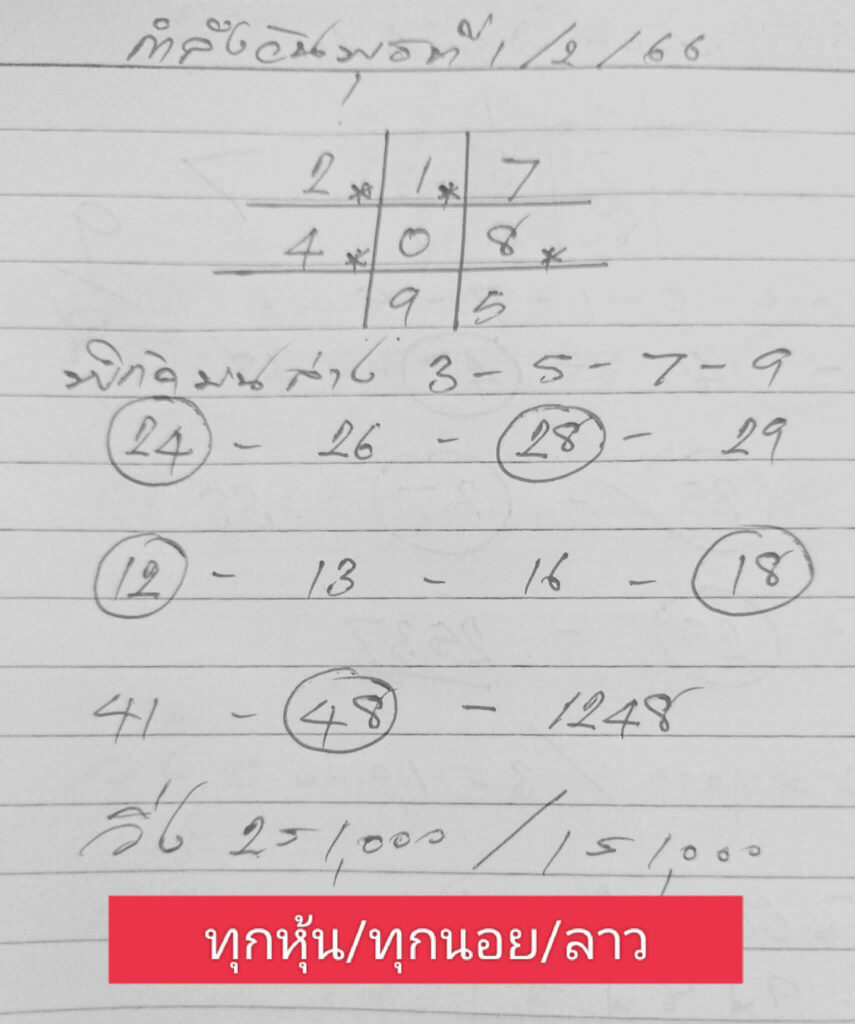 กำลังวันพุธที่ 1/2/66
2* 1* 7
4* 0 8*
9 5
พิกัดบนล่าง 3-5-7-9
24 - 26 - 28 - 29
12 - 13 - 16 - 18
41 - 48 - 1248
วิ่ง 2=1,000 / 1=1,000
ทุกหุ้น/ทุกนอย/ลาว